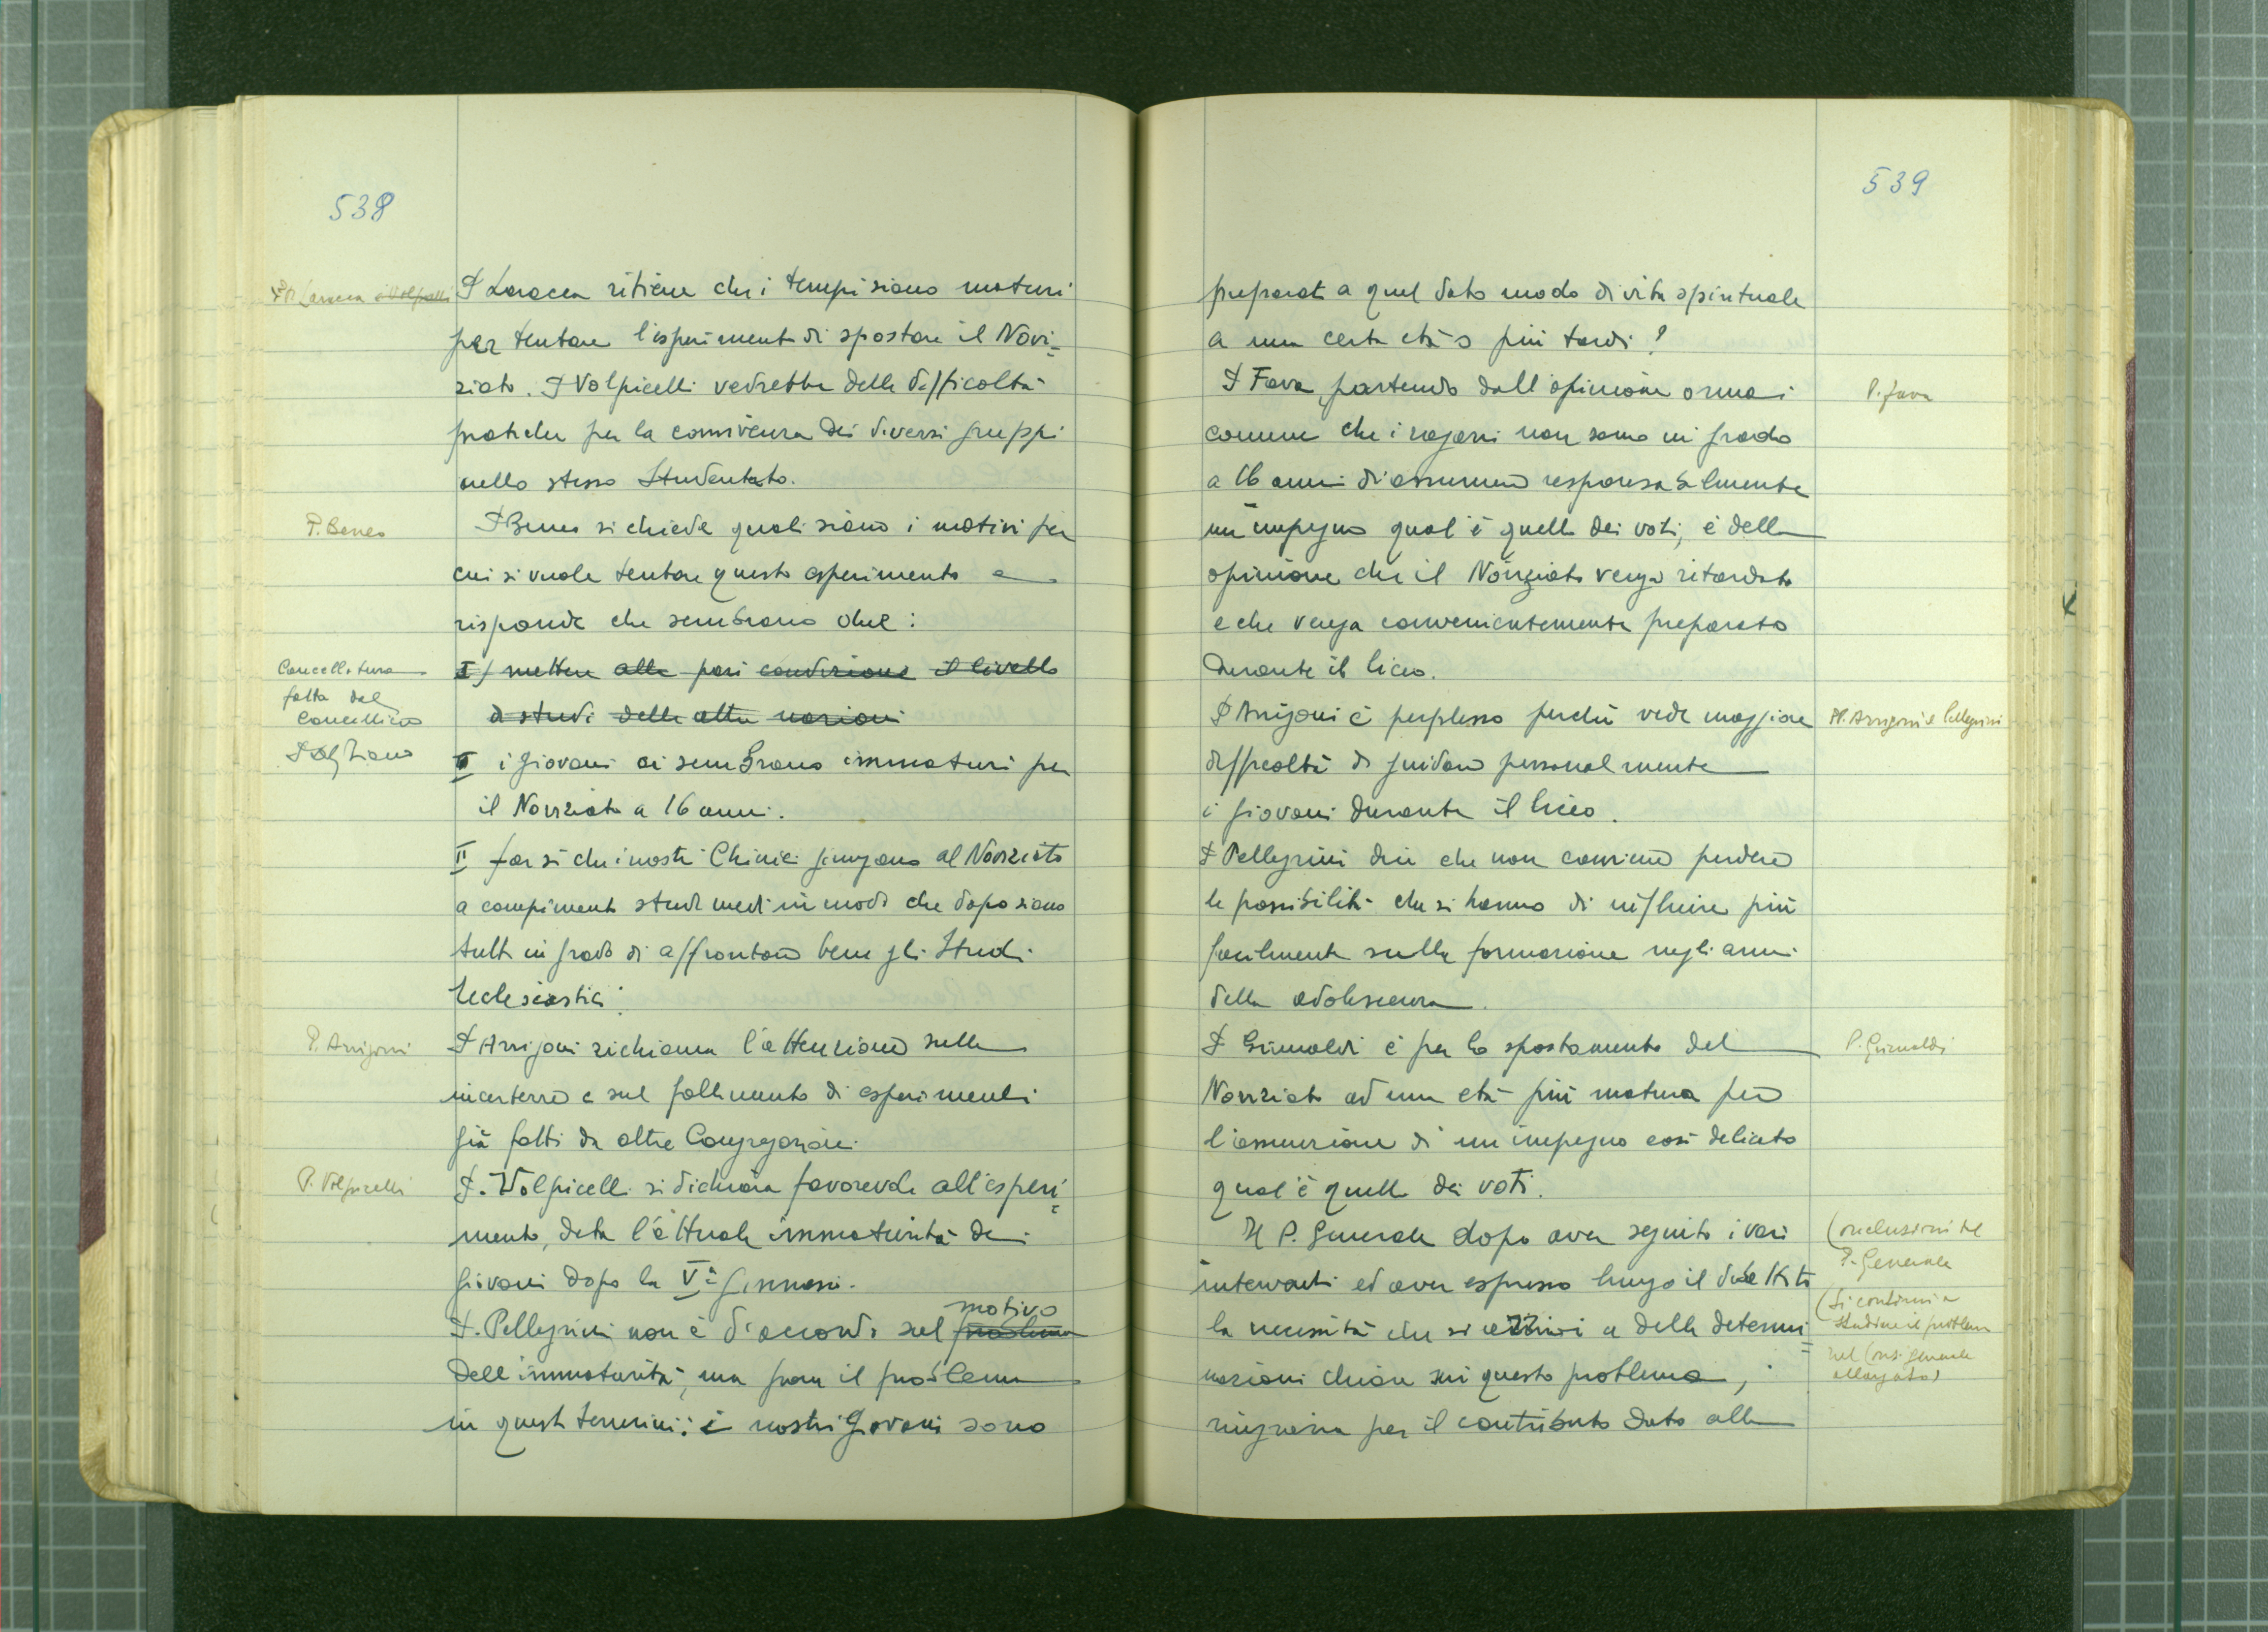 538
P. Laracca e Volpicelli
P Laracca ritiene che i tempi siano maturi
per tentare l'esperimento di spostare il Novi=
ziato. P Volpicelli vedrebbe delle difficoltà
pratiche per la convivenza dei diversi gruppi
nello stesso Studentato.
P. Beneo
P Beneo si chiede quali siano i motivi per
cui si vuole tentare questo esperimento e
risponde che sembrano due:
Cancellatura
fatta dal
Cancelliere
I) mettere alla pari condizione il livello
di studi delle altre nazioni
II i giovani ci sembrano immaturi per
il Noviziato a 16 anni.
II far si che i nostri Chierici giungano al Noviziato
a compimento studi medi in modo che dopo siano
tutti in grado di affrontare bene gli Studi
Ecclesiastici.
P. Arrigoni
P Arrigoni richiama l'attenzione sulle
incertezze e sul fallimento di esperimenti
già fatti da altre Congregazioni.
P. Volpicelli
P. Volpicelli si dichiara favorevole all'esperi=
mento, data l'attuale immaturità dei
giovani dopo la Va ginnasi.
P. Pellegrini non è d'accordo sul problema motivo
dell'immaturità, ma pone il problema
in questi termini: i nostri giovani sono
539
preparati a quel dato modo di vita spirituale
a una certa età o più tardi?
P. Fava
P Fava, partendo dall'opinione ormai
comune che i ragazzi non sono in grado
a 16 anni di assumere responsabilmente
un impegno qual'è quello dei voti, è della
opinione che il Noviziato venga ritardato
e che venga convenientemente preparato
durante il liceo.
PP. Arrigoni e Pellegrini
P Arrigoni è perplesso perchè vede maggiore
difficoltà di guidare personalmente
i giovani durante il liceo.
P Pellegrini dice che non conviene perdere
le possibilità che si hanno di influire più
facilmente sulla formazione negli anni
della adolescenza.
P. Grimaldi
P Grimaldi è per lo spostamento del
Noviziato ad una età più matura per
l'assunzione di un impegno così delicato
qual'è quello dei voti.
Conclusioni del
P. Generale
(si continui a
studiare il problema
nel Cons. generale
allargato)
Il P. Generale dopo aver seguito i vari
interventi ed aver espresso lungo il dibattito
la necessità che si arrivi a delle determi=
nazioni chiare su questo problema,
ringrazia per il contributo dato alla